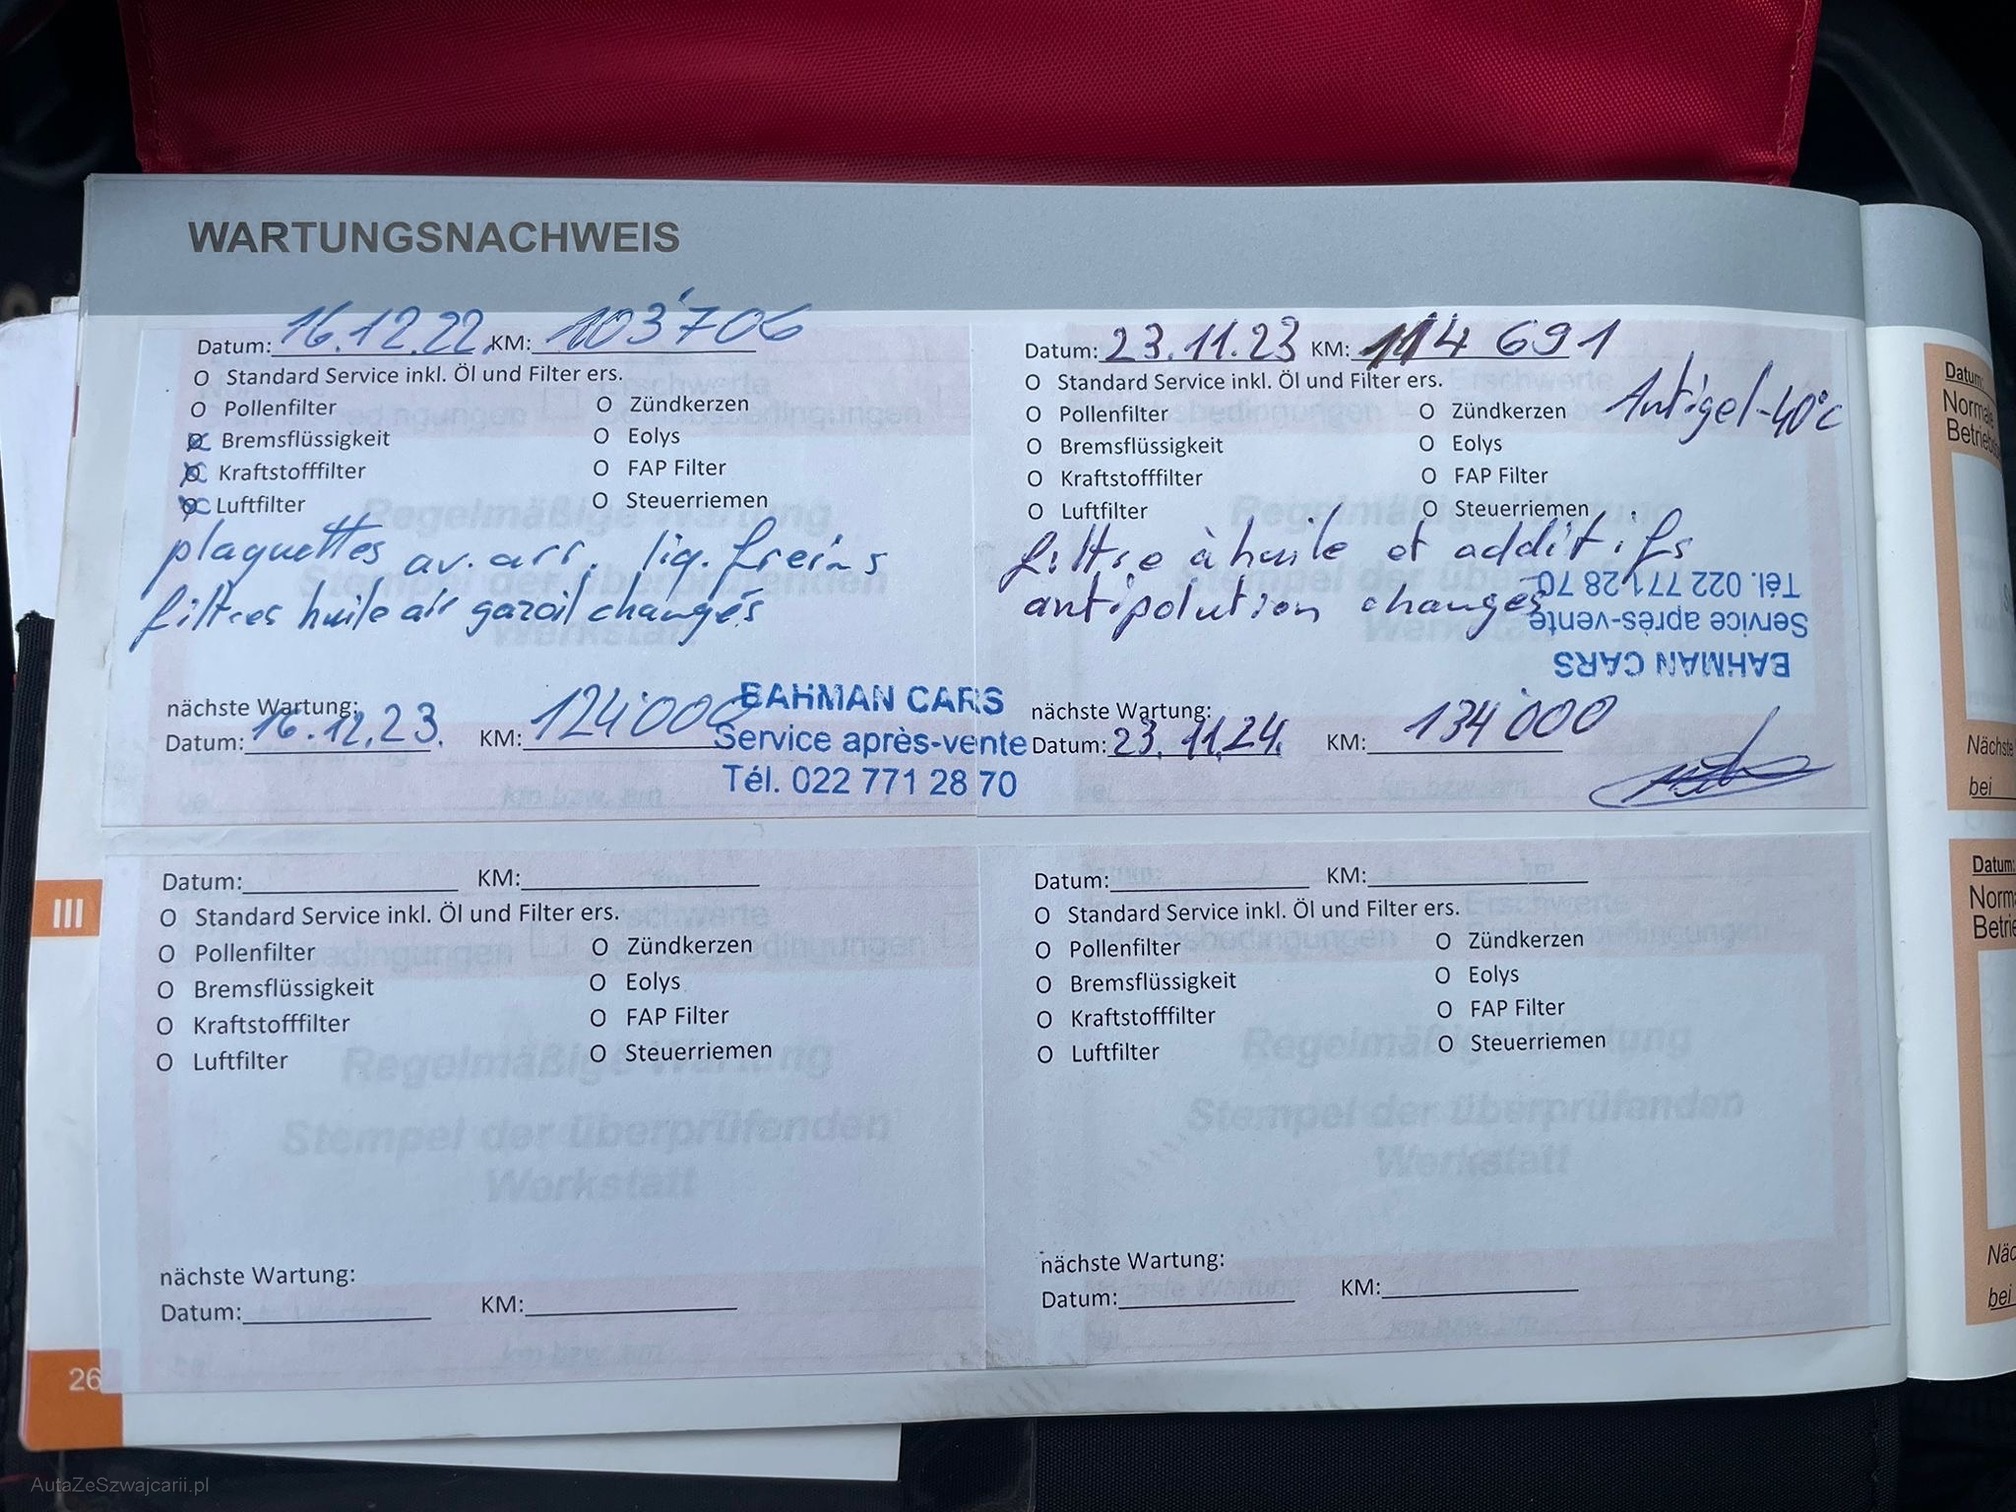 WARTUNGSNACHWEIS
Datum: 16.12.22 KM: 103'706
O Standard Service inkl. Öl und Filter ers.
O Pollenfilter O Zündkerzen
Bremsflüssigkeit O Eolys
Kraftstofffilter O FAP Filter
Luftfilter O Steuerriemen
plaquettes av. arr. liq. freins
filtres huile air gazoil changés
nächste Wartung:
Datum: 16.12.23. KM: 124'000
BAHMAN CARS
Service après-vente
Tél. 022 771 28 70
Datum: 23.11.23 KM: 114 691
O Standard Service inkl. Öl und Filter ers.
O Pollenfilter O Zündkerzen
Antigel-40°c
O Bremsflüssigkeit O Eolys
O Kraftstofffilter O FAP Filter
O Luftfilter O Steuerriemen
filtre à huile et additifs
antipolution changés
BAHMAN CARS
Service après-vente
Tél. 022 771 28 70
nächste Wartung:
Datum: 23.11.24. KM: 134'000
Datum: KM:
O Standard Service inkl. Öl und Filter ers.
O Pollenfilter O Zündkerzen
O Bremsflüssigkeit O Eolys
O Kraftstofffilter O FAP Filter
O Luftfilter O Steuerriemen
Regelmäßige Wartung
Stempel der überprüfenden
Werkstatt
nächste Wartung:
Datum: KM:
Datum: KM:
O Standard Service inkl. Öl und Filter ers.
O Pollenfilter O Zündkerzen
O Bremsflüssigkeit O Eolys
O Kraftstofffilter O FAP Filter
O Luftfilter O Steuerriemen
Regelmäßige Wartung
Stempel der überprüfenden
Werkstatt
nächste Wartung:
Datum: KM:
III
26
Datum:
Nächste
bei
Datum:
bei
AutaZeSzwajcarii.pl